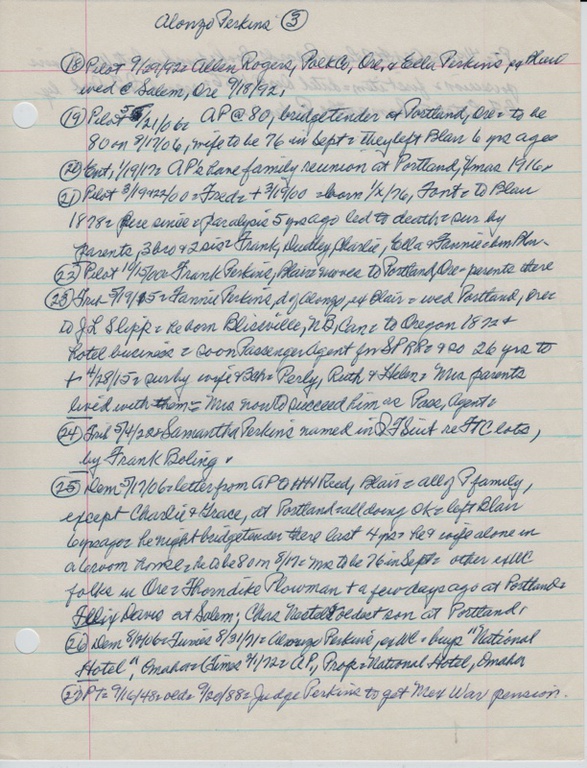 Alonzo Perkins ③
⑱ Pilot 9/29/92= Allen Rogers, Polk Co, Ore, & Ella Perkins, ex Blair
wed @ Salem, Ore 9/18/92;
⑲ Pilot 5/21/06= AP @ 80, bridgetender at Portland, Ore= to be
80 on 8/17/06, wife to be 76 in Sept= they left Blair 6 yrs ago=
⑳ Ent, 1/19/17= AP's have family reunion at Portland, Xmas 1916,
㉑ Pilot 3/19&22/00= Fred= + 3/19/00 =born 1/2/76, Font= to Blair
1878= here since= paralysis 5 yrs ago led to death= sur by
parents, 3 bro & 2 sis= Frank, Dudley, Charlie, Ella & Fannie=
㉒ Pilot = Frank Perkins, Blair= moves to Portland, Ore= parents there
㉓ Trib 5/19/15= Fannie Perkins, d of Alonzo, ex Blair= wed Portland, Ore
to J L Slipp= he born Blissville, NB, Can= to Oregon 1872 &
hotel business= soon Passenger Agent for SP RR= so 26 yrs to
+ 4/28/15= sur by wife & Perly, Ruth & Helen= Mrs parents
lived with them= Mrs now to succeed him as Pass, Agent=
㉔ Trib 5/4/20= Samantha Perkins named in QT Suit re FTC lots,
by Frank Boling.
㉕ Dem 5/17/06= letter from AP @ HH Reed, Blair= all of P family,
except Charlie & Grace, at Portland= all doing OK= left Blair
6 yrs ago= he night bridgetender there last 4 yrs= he & wife alone in
a 6 room home= he to be 80 on 8/17= Mrs to be 76 in Sept= other ex WC
folks in Ore= Thorndike Plowman + a few days ago at Portland=
Davis at Salem; Chas oldest son at Portland,
㉖ Dem 8/4/06= Times 8/31/71= Alonzo Perkins, ex WC = buys "National
Hotel", Omaha= (Times 4/1/72= AP, Prop= National Hotel, Omaha
㉗ PT= 9/16/48= old= 9/20/88= Judge Perkins to get Mex War pension.